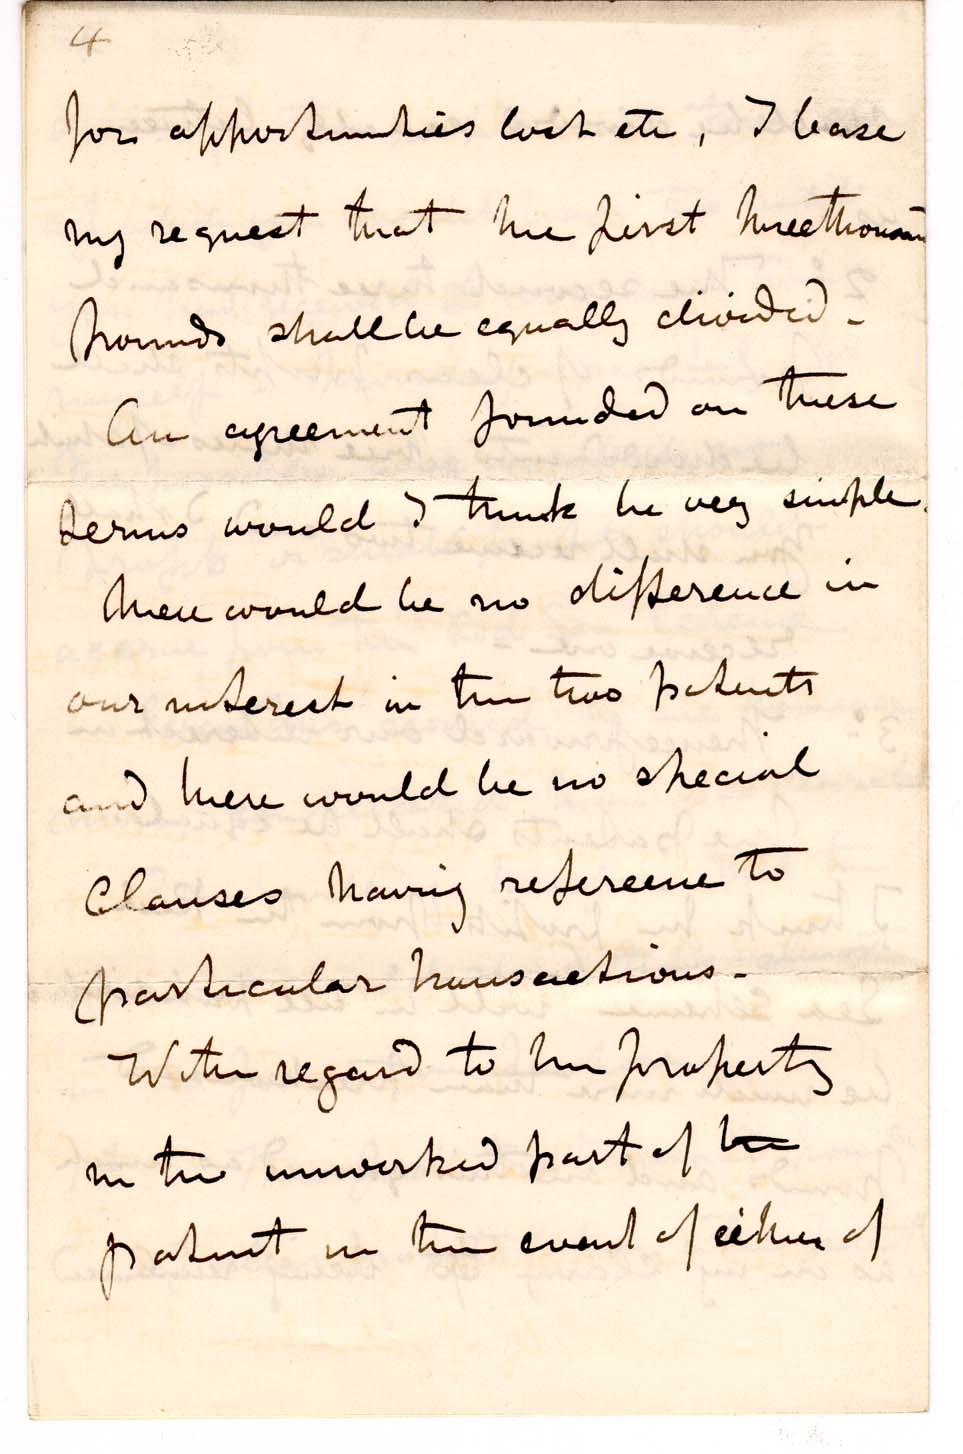 4
for opportunities lost etc, I base
my request that the first three thousand
pounds shall be equally divided -
An agreement founded on these
terms would I think be very simple.
There would be no difference in
our interest in the two patents
and there would be no special
Clauses having reference to
particular transactions -
With regard to the property
in the unworked part of the
patent in the event of either of